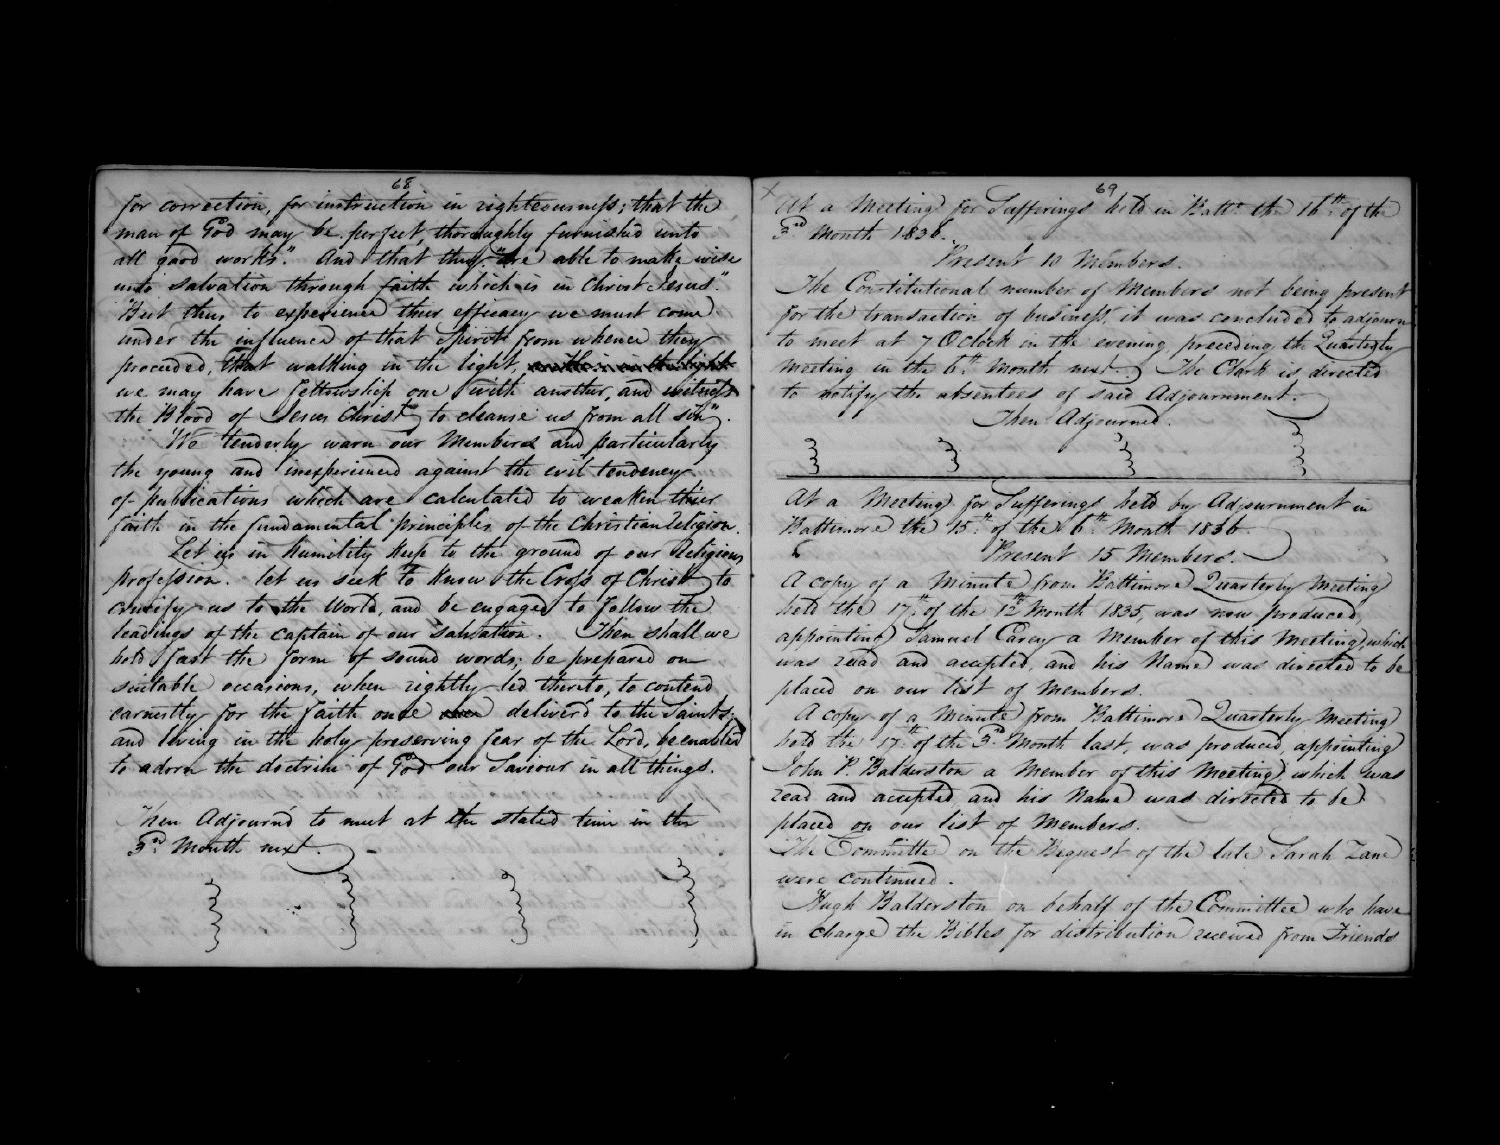 68
for correction, for instruction in righteousness; that the
man of God may be perfect, thoroughly furnished unto
all good works". And that they "are able to make wise
unto salvation through faith which is in Christ Jesus."
But thus to experience their efficacy we must come
under the influence of that Spirit from whence they
proceeded, that walking in the light,
we may have fellowship one with another, and witness
the Blood of Jesus Christ to cleanse us from all sin".
We tenderly warn our Members and particularly
the young and inexperienced against the evil tendency
of publications which are calculated to weaken their
faith in the fundamental principles of the Christian Religion.
Let us in humility keep to the ground of our Religious
profession. let us seek to know the Cross of Christ to
crucify us to the World, and be engaged to follow the
leadings of the captain of our salvation. Then shall we
hold fast the form of sound words; be prepared on
suitable occasions, when rightly led thereto, to contend
earnestly for the faith once deliver'd to the Saints;
and living in the holy preserving fear of the Lord, be enabled
to adorn the doctrine of God our Saviour in all things.
Then Adjourn'd to meet at the stated time in the
3rd Month next.
69
X
At a Meeting for Sufferings held in Balto. the 16th of the
3rd Month 1836.
Present 10 Members.
The Constitutional number of Members not being present
for the transaction of business, it was concluded to adjourn
to meet at 7 OClock in the evening preceding the Quarterly
Meeting in the 6th Month next. The Clerk is directed
to notify the absentees of said Adjournment.
Then Adjourned.
At a Meeting for Sufferings held by Adjournment in
Baltimore the 15th of the 6th Month 1836.
Present 15 Members.
A copy of a Minute from Baltimore Quarterly Meeting
held the 17th of the 12th Month 1835, was now produced,
appointing Samuel Carey a Member of this Meeting, which
was read and accepted, and his Name was directed to be
placed on our list of Members.
A copy of a Minute from Baltimore Quarterly Meeting
held the 17th of the 3rd Month last, was produced, appointing
John P. Balderston a Member of this Meeting, which was
read and accepted, and his Name was directed to be
placed on our list of Members.
The Committee on the Bequest of the late Sarah Zane
were continued.
Hugh Balderston on behalf of the Committee who have
in charge the Bibles for distribution received from Friends